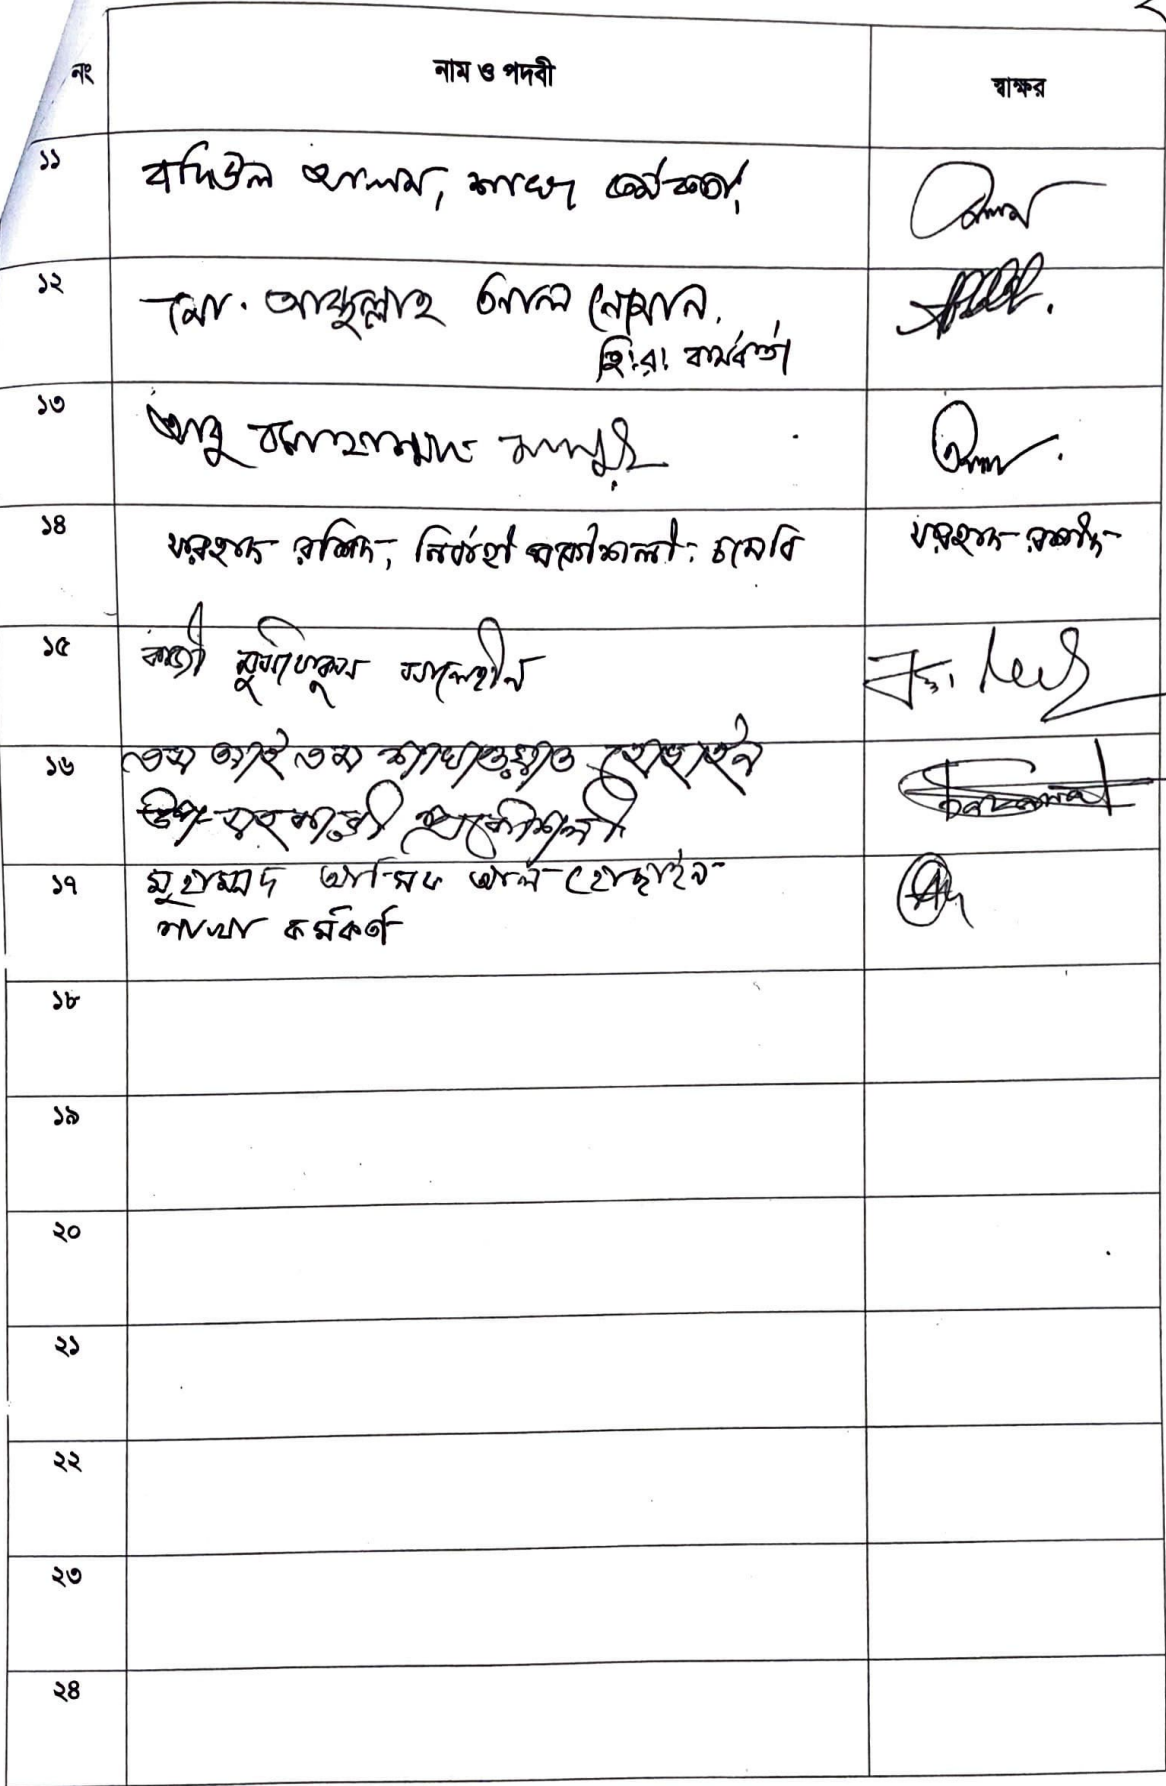 নং নাম ও পদবী স্বাক্ষর
১১ বদিউল আলম, শাখা কর্মকর্তা আলম
১২ মো. আব্দুল্লাহ আল নোমান,
হি.র. কর্মকর্তা
১৩ আবু মোহাম্মদ
১৪ ফরহাদ রশিদ, নির্বাহী প্রকৌশলী, চমেবি ফরহাদ রশীদ
১৫ কাজী সালেহীন
১৬ এম আই এম শাখাওয়াত হোছাইন
উপ-সহকারী প্রকৌশলী
১৭ মুহাম্মদ আসিফ আল হোছাইন
শাখা কর্মকর্তা
১৮
১৯
২০
২১
২২
২৩
২৪